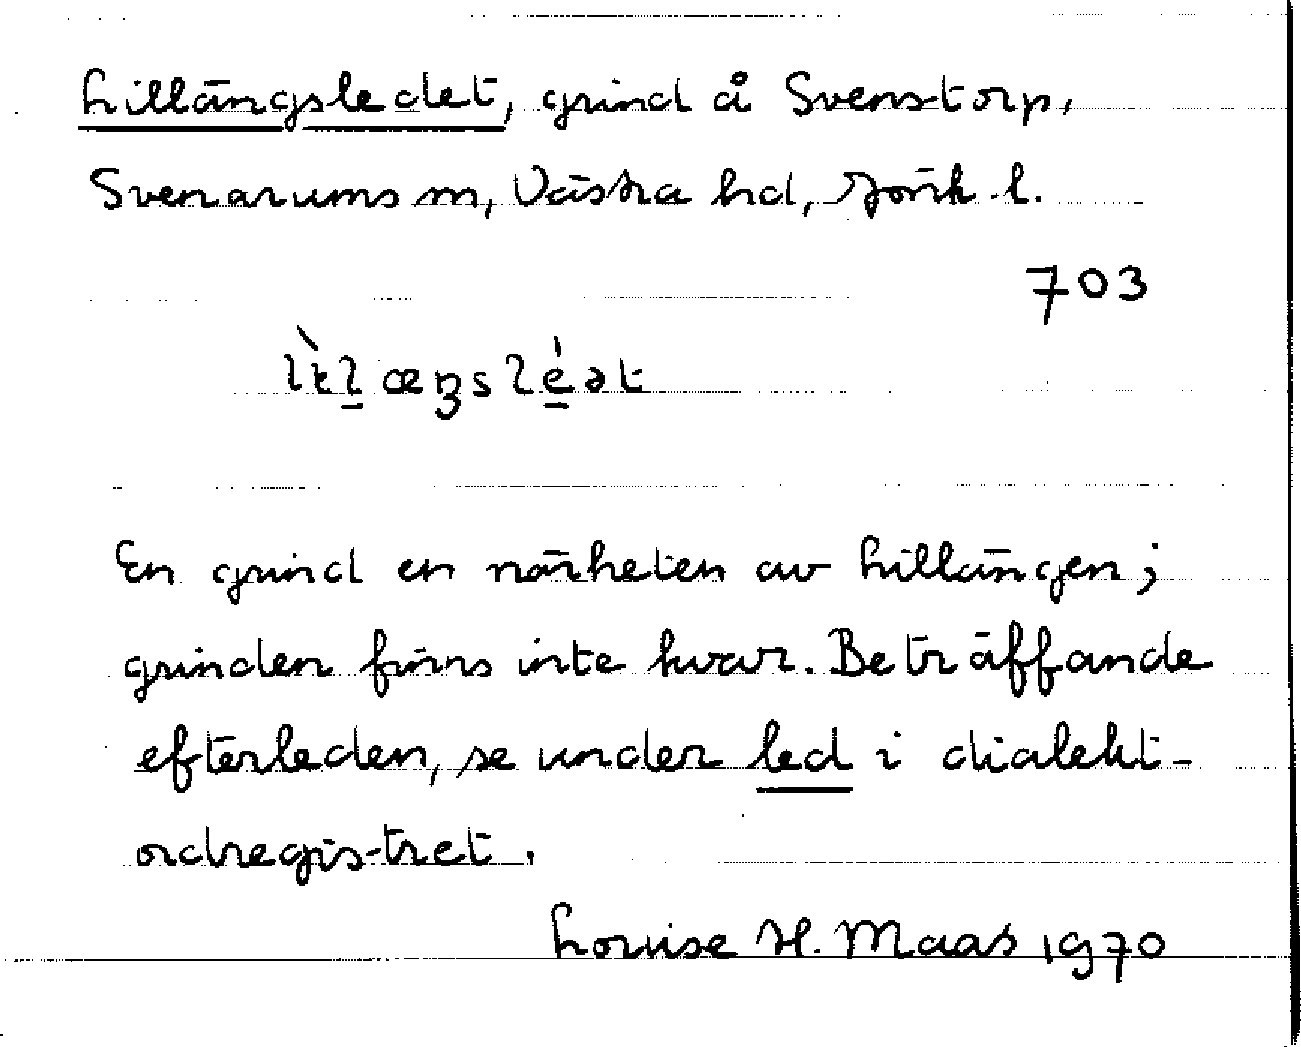 Lillängsledet, grind å Svenstorp,
Svenarums sn, Västra hd, Jönk. l.
703
lìt̀l̠æŋslé̠ət
En grind en närheten av Lillängen;
grinden finns inte kvar. Beträffande
efterleden, se under led i dialekt-
ordregistret.
Louise H. Maas 1970